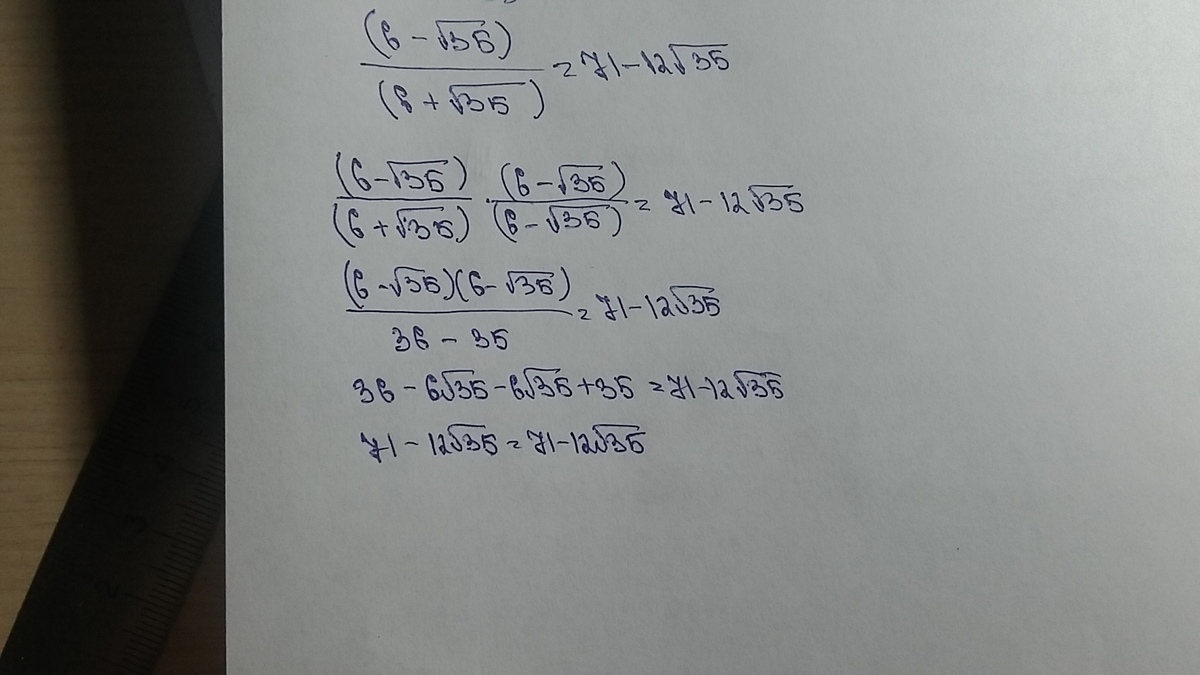 (6 - √35) / (6 + √35) = 71 - 12√35
(6 - √35) / (6 + √35) · (6 - √35) / (6 - √35) = 71 - 12√35
(6 - √35)(6 - √35) / 36 - 35 = 71 - 12√35
36 - 6√35 - 6√35 + 35 = 71 - 12√35
71 - 12√35 = 71 - 12√35
4
3
2